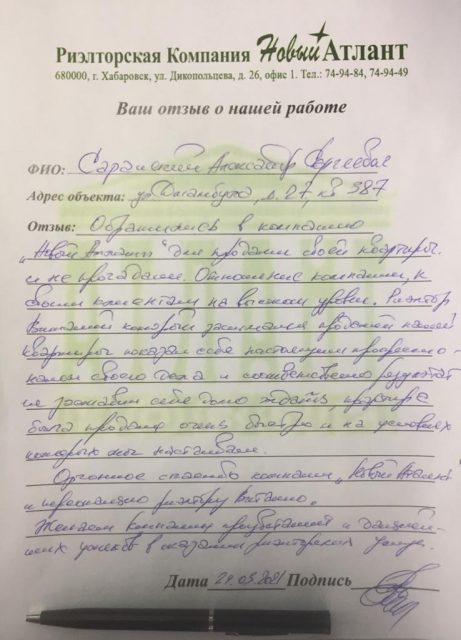 Риэлторская Компания Новый Атлант
680000, г. Хабаровск, ул. Дикопольцева, д. 26, офис 1. Тел.: 74-94-84, 74-94-49
Ваш отзыв о нашей работе
ФИО: Александр Сергеевич
Адрес объекта: ул Джамбула, д. 27, кв 387
Отзыв: Обратились в компанию
„Новый Атлант" для продажи своей квартиры
и не прогадали. Отношение компании, к
своим клиентам на высоком уровне. Риэлтор
Виталий который занимался продажей нашей
квартиры показал себя настоящим професcио-
налом своего дела и соответственно результат
не заставил себе долго ждать, квартира
была продана очень быстро и на условиях
которых мы настаивали.
Огромное спасибо компании „Новый Атлант"
и персонально риэлтору Виталию.
Желаем компании процветания и дальней-
ших успехов в оказании риэлторских услуг.
Дата 29.03.2021 Подпись